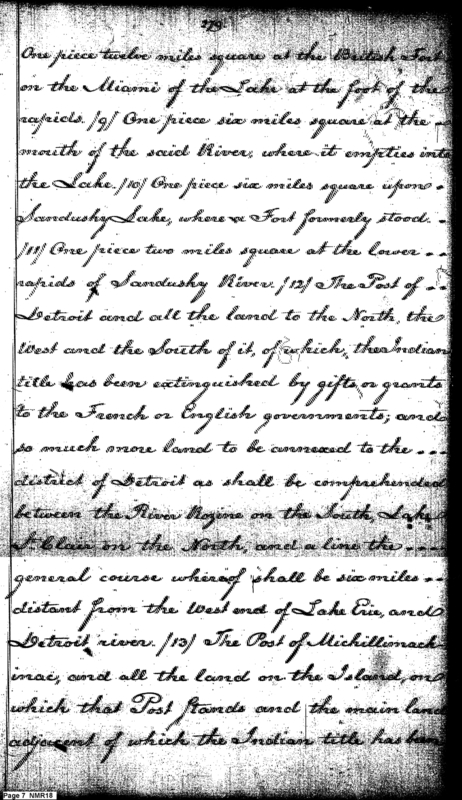 279
One piece twelve miles square at the British Fort
on the Miami of the Lake at the foot of the
rapids. /9/ One piece six miles square at the
mouth of the said River, where it empties into
the Lake. /10/ One piece six miles square upon
Sandusky Lake, where a Fort formerly stood.
/11/ One piece two miles square at the lower
rapids of Sandusky River. /12/ The Post of
Detroit and all the land to the North, the
West and the South of it, of which, the Indian
title has been extinguished by gifts or grants
to the French or English governments; and
so much more land to be annexed to the
district of Detroit as shall be comprehended
between the River Rozine on the South, Lake
St. Clair on the North, and a line the
general course whereof shall be six miles
distant from the West end of Lake Erie, and
Detroit river. /13/ The Post of Michillimack-
inac, and all the land on the Island, on
which that Post Stands and the main land
adjacent of which the Indian title has been
Page 7 NMR18